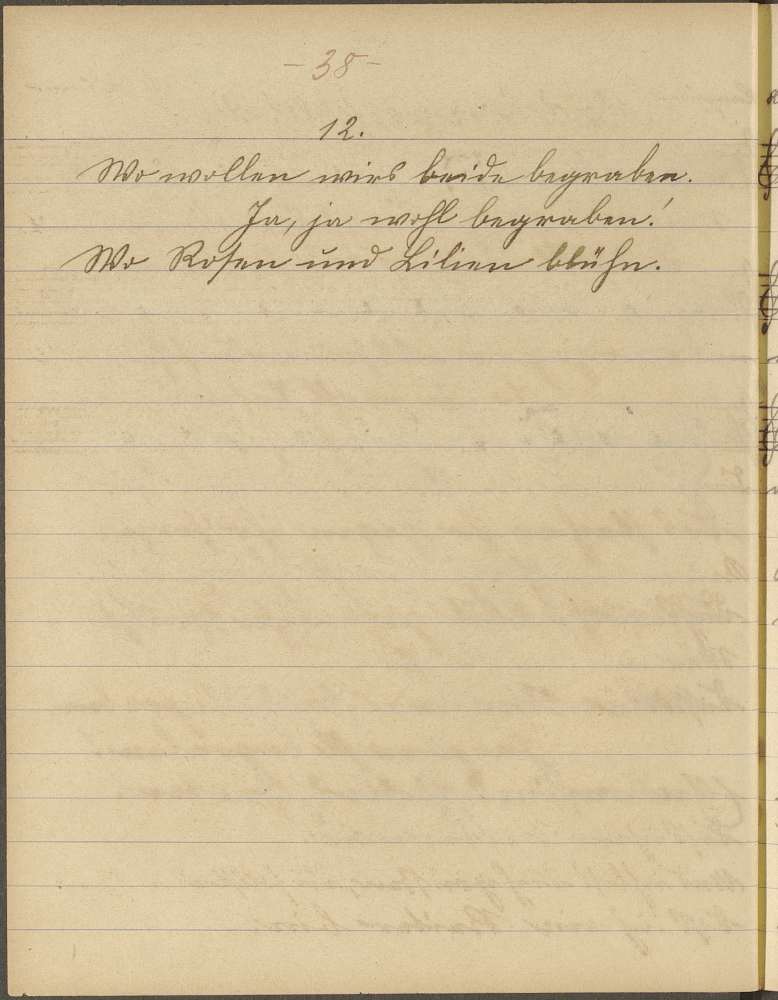 -38-
12.
Wo wollen wirs beide begraben.
Ja, ja wohl begraben!
Wo Rosen und Lilien blühn.